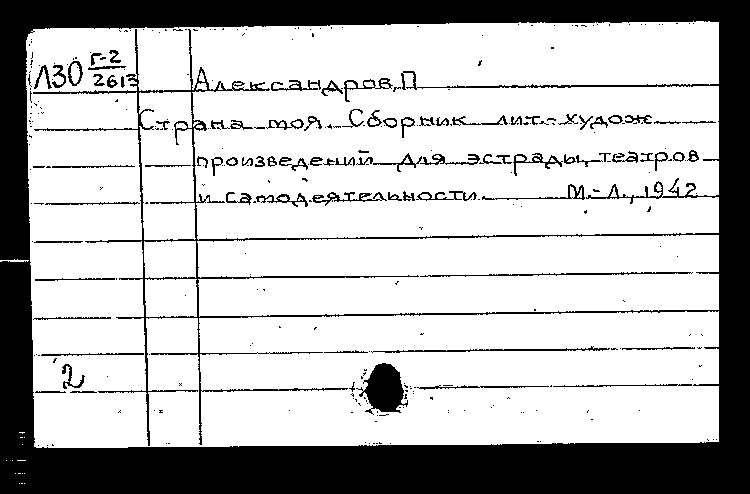 Л30 Г-2/2613
Александров, П
Страна моя. Сборник лит.-худож.
произведений для эстрады, театров
и самодеятельности. М.-Л., 1942
2